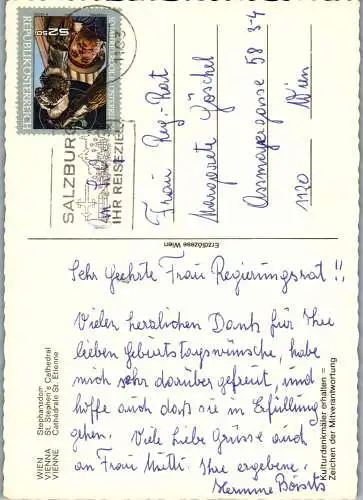 REPUBLIK ÖSTERREICH
S2.50
SALZBURG
IHR REISEZIEL
Frau Reg.-Rat
Margarete Göschel
Assmayergasse 58 3-4
1120 Wien
WIEN Stephansdom
VIENNA St. Stephen's Cathedral
VIENNE Cathédrale St. Etienne
Erzdiözese Wien
Kulturdenkmäler erhalten =
Zeichen der Mitverantwortung
Sehr geehrte Frau Regierungsrat !!
Vielen herzlichen Dank für Ihre
lieben Geburtstagswünsche, habe
mich sehr darüber gefreut, und
hoffe auch daß sie in Erfüllung
gehen. Viele liebe Grüsse auch
an Frau Mutti. Ihre ergebene